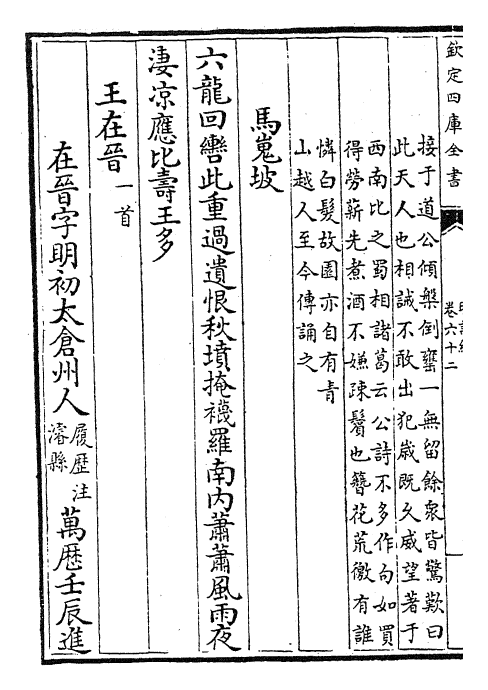 欽定四庫全書
卷六十二
接于道公傾槃倒壅一無留餘衆皆驚歎曰
此天人也相誡不敢出犯嵗既久威望著于
西南比之蜀相諸葛云公詩不多作句如買
得勞薪先煮酒不嫌疎鬢也簪花荒徼有誰
憐白髮故園亦自有青
山越人至今傳誦之
馬嵬坡
六龍回轡此重過遺恨秋墳掩襪羅南内蕭蕭風雨夜
淒凉應比壽王多
王在晉一首
在晉字明初太倉州人履歴注濬縣萬歴壬辰進